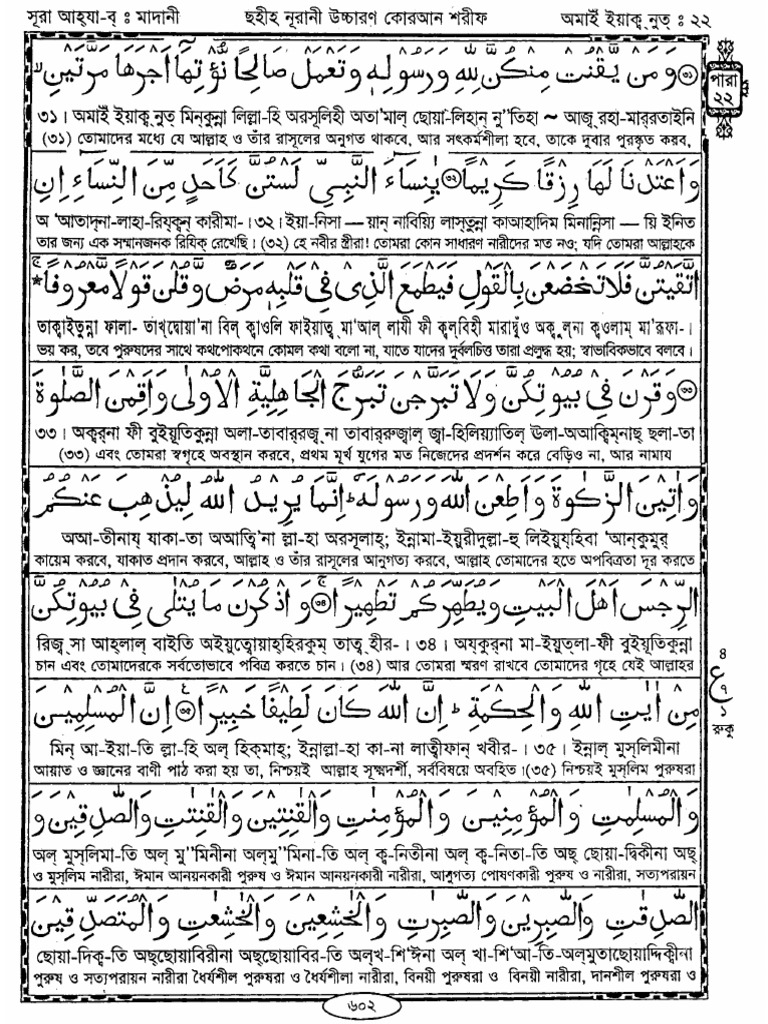 সূরা আহ্‌যা-ব্ : মাদানী
ছহীহ্ নূরানী উচ্চারণ কোরআন শরীফ
অমাইঁ ইয়াক্ব্ নুত্ : ২২
পারা
২২
﴿٣١﴾ وَمَنْ يَّقْنُتْ مِنْكُنَّ لِلّٰهِ وَرَسُوْلِهٖ وَتَعْمَلْ صَالِحًا نُّؤْتِهَا اَجْرَهَا مَرَّتَيْنِ ۙ
৩১। অমাইঁ ইয়াক্ব্ নুত্ মিন্‌কুন্না লিল্লা-হি অরসূলিহী অতা'মাল্ ছোয়া-লিহান্ নু''তিহা ~ আজ্ রহা-মার্‌রতাইনি
(৩১) তোমাদের মধ্যে যে আল্লাহ ও তাঁর রাসূলের অনুগত থাকবে, আর সৎকর্মশীলা হবে, তাকে দুবার পুরস্কৃত করব,
وَاَعْتَدْنَا لَهَا رِزْقًا كَرِيْمًا ﴿٣٢﴾ يٰنِسَآءَ النَّبِيِّ لَسْتُنَّ كَاَحَدٍ مِّنَ النِّسَآءِ اِنِ
অ 'আতাদ্‌না-লাহা-রিয্‌ক্বন্ কারীমা-। ৩২। ইয়া-নিসা — য়ান্ নাবিয়্যি লাস্‌তুন্না কাআহাদিম মিনান্নিসা — য়ি ইনিত
তার জন্য এক সম্মানজনক রিযিক্ রেখেছি। (৩২) হে নবীর স্ত্রীরা! তোমরা কোন সাধারণ নারীদের মত নও; যদি তোমরা আল্লাহকে
اتَّقَيْتُنَّ فَلَا تَخْضَعْنَ بِالْقَوْلِ فَيَطْمَعَ الَّذِيْ فِيْ قَلْبِهٖ مَرَضٌ وَّقُلْنَ قَوْلًا مَّعْرُوْفًا ۚ
তাক্বাইতুন্না ফালা- তাখ্‌দ্বোয়া'না বিল্ ক্বাওলি ফাইয়াত্ব্ মা'আল্ লাযী ফী ক্বল্‌বিহী মারাদ্বুঁও অক্বু ল্‌না ক্বওলাম্ মা'রূফা-।
ভয় কর, তবে পুরুষদের সাথে কথপোকথনে কোমল কথা বলো না, যাতে যাদের দুর্বলচিত্ত তারা প্রলুব্ধ হয়; স্বাভাবিকভাবে বলবে।
﴿٣٣﴾ وَقَرْنَ فِيْ بُيُوْتِكُنَّ وَلَا تَبَرَّجْنَ تَبَرُّجَ الْجَاهِلِيَّةِ الْاُوْلٰى وَاَقِمْنَ الصَّلٰوةَ
৩৩। অক্বর্‌না ফী বুইয়ূতিকুন্না অলা-তাবার্‌রজ্ না তাবার্‌রুজ্বাল্ জ্বা-হিলিয়্যাতিল্ ঊলা-অআক্বিম্‌নাছ্ ছলা-তা
(৩৩) এবং তোমরা স্বগৃহে অবস্থান করবে, প্রথম মূর্খ যুগের মত নিজেদের প্রদর্শন করে বেড়িও না, আর নামায
وَاٰتِيْنَ الزَّكٰوةَ وَاَطِعْنَ اللّٰهَ وَرَسُوْلَهٗ ؕ اِنَّمَا يُرِيْدُ اللّٰهُ لِيُذْهِبَ عَنْكُمُ
অআ-তীনায্ যাকা-তা অআত্বি'না ল্লা-হা অরসূলাহ্; ইন্নামা-ইয়ুরীদুল্লা-হু লিইয়ুয্‌হিবা 'আন্‌কুমুর্
কায়েম করবে, যাকাত প্রদান করবে, আল্লাহ ও তাঁর রাসূলের আনুগত্য করবে, আল্লাহ তোমাদের হতে অপবিত্রতা দূর করতে
الرِّجْسَ اَهْلَ الْبَيْتِ وَيُطَهِّرَكُمْ تَطْهِيْرًا ۚ ﴿٣٤﴾ وَاذْكُرْنَ مَا يُتْلٰى فِيْ بُيُوْتِكُنَّ
রিজ্ সা আহ্‌লাল্ বাইতি অইয়ুত্বোয়াহ্‌হিরকুম্ তাত্ব্ হীর-। ৩৪। অয্‌কুর্‌না মা-ইয়ুত্‌লা-ফী বুইয়ূতিকুন্না
চান এবং তোমাদেরকে সর্বতোভাবে পবিত্র করতে চান। (৩৪) আর তোমরা স্মরণ রাখবে তোমাদের গৃহে যেই আল্লাহর
مِنْ اٰيٰتِ اللّٰهِ وَالْحِكْمَةِ ؕ اِنَّ اللّٰهَ كَانَ لَطِيْفًا خَبِيْرًا ﴿٣٥﴾ اِنَّ الْمُسْلِمِيْنَ
মিন্ আ-ইয়া-তি ল্লা-হি অল্ হিক্‌মাহ্; ইন্নাল্লা-হা কা-না লাত্বীফান্ খবীর-। ৩৫। ইন্নাল্ মুস্‌লিমীনা
আয়াত ও জ্ঞানের বাণী পাঠ করা হয় তা, নিশ্চয়ই আল্লাহ সূক্ষ্মদর্শী, সর্ববিষয়ে অবহিত।(৩৫) নিশ্চয়ই মুস্‌লিম পুরুষরা
৪
ع
৭
১
রুকু
وَالْمُسْلِمٰتِ وَالْمُؤْمِنِيْنَ وَالْمُؤْمِنٰتِ وَالْقٰنِتِيْنَ وَالْقٰنِتٰتِ وَالصّٰدِقِيْنَ وَ
অল্ মুস্‌লিমা-তি অল্ মু''মিনীনা অল্‌মু''মিনা-তি অল্ ক্ব-নিতীনা অল্ ক্ব-নিতা-তি অছ্ ছোয়া-দ্বিকীনা অছ্
ও মুস্‌লিম নারীরা, ঈমান আনয়নকারী পুরুষ ও ঈমান আনয়নকারী নারীরা, আনুগত্য পোষণকারী পুরুষ ও নারীরা, সত্যপরায়ন
الصّٰدِقٰتِ وَالصّٰبِرِيْنَ وَالصّٰبِرٰتِ وَالْخٰشِعِيْنَ وَالْخٰشِعٰتِ وَالْمُتَصَدِّقِيْنَ
ছোয়া-দিক্ব-তি অছ্‌ছোয়াবিরীনা অছ্‌ছোয়াবির-তি অল্‌খ-শি'ঈনা অল্ খা-শি'আ-তি-অল্‌মুতাছোয়াদ্দিক্বীনা
পুরুষ ও সত্যপরায়ন নারীরা ধৈর্যশীল পুরুষরা ও ধৈর্যশীলা নারীরা, বিনয়ী পুরুষরা ও বিনয়ী নারীরা, দানশীল পুরুষরা ও
৬০২